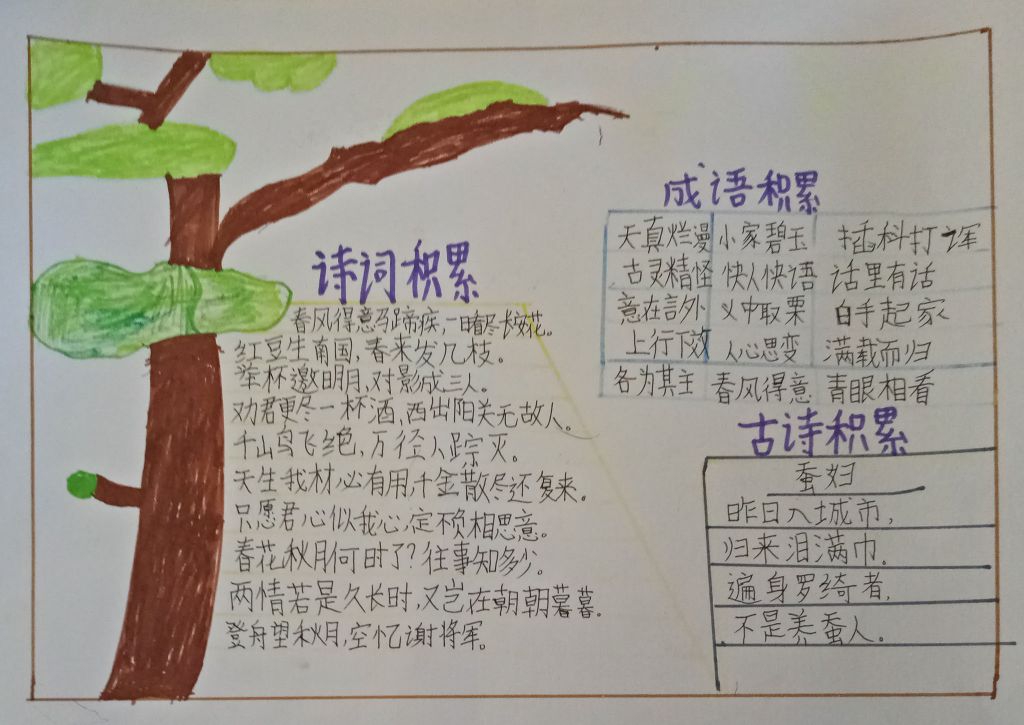 诗词积累
春风得意马蹄疾,一日看尽长安花。
红豆生南国,春来发几枝。
举杯邀明月,对影成三人。
劝君更尽一杯酒,西出阳关无故人。
千山鸟飞绝,万径人踪灭。
天生我材必有用,千金散尽还复来。
只愿君心似我心,定不负相思意。
春花秋月何时了?往事知多少。
两情若是久长时,又岂在朝朝暮暮。
登舟望秋月,空忆谢将军。
成语积累
天真烂漫 小家碧玉 插科打诨
古灵精怪 快人快语 话里有话
意在言外 义中取栗 白手起家
上行下效 人心思变 满载而归
各为其主 春风得意 青眼相看
古诗积累
蚕妇
昨日入城市,
归来泪满巾。
遍身罗绮者,
不是养蚕人。